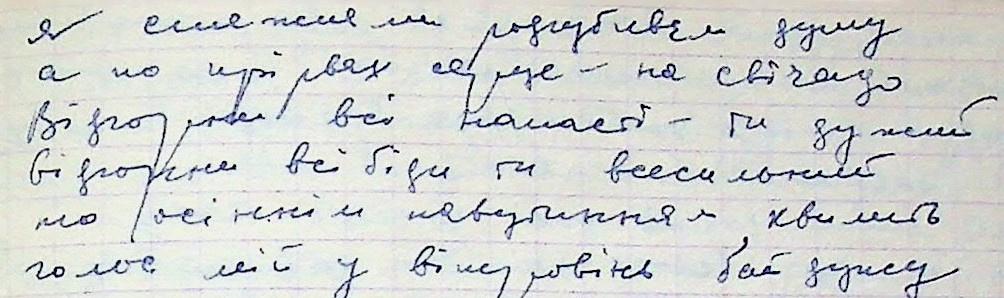 я стежками розгубивсь душу
а по прірвах серце – на свічадо
Відгорни всі напасті – ти дужий
відгорни всі біди ти всесильний
мо осіннім павутинням хвилить
голос мій у віку ровінь байдужу